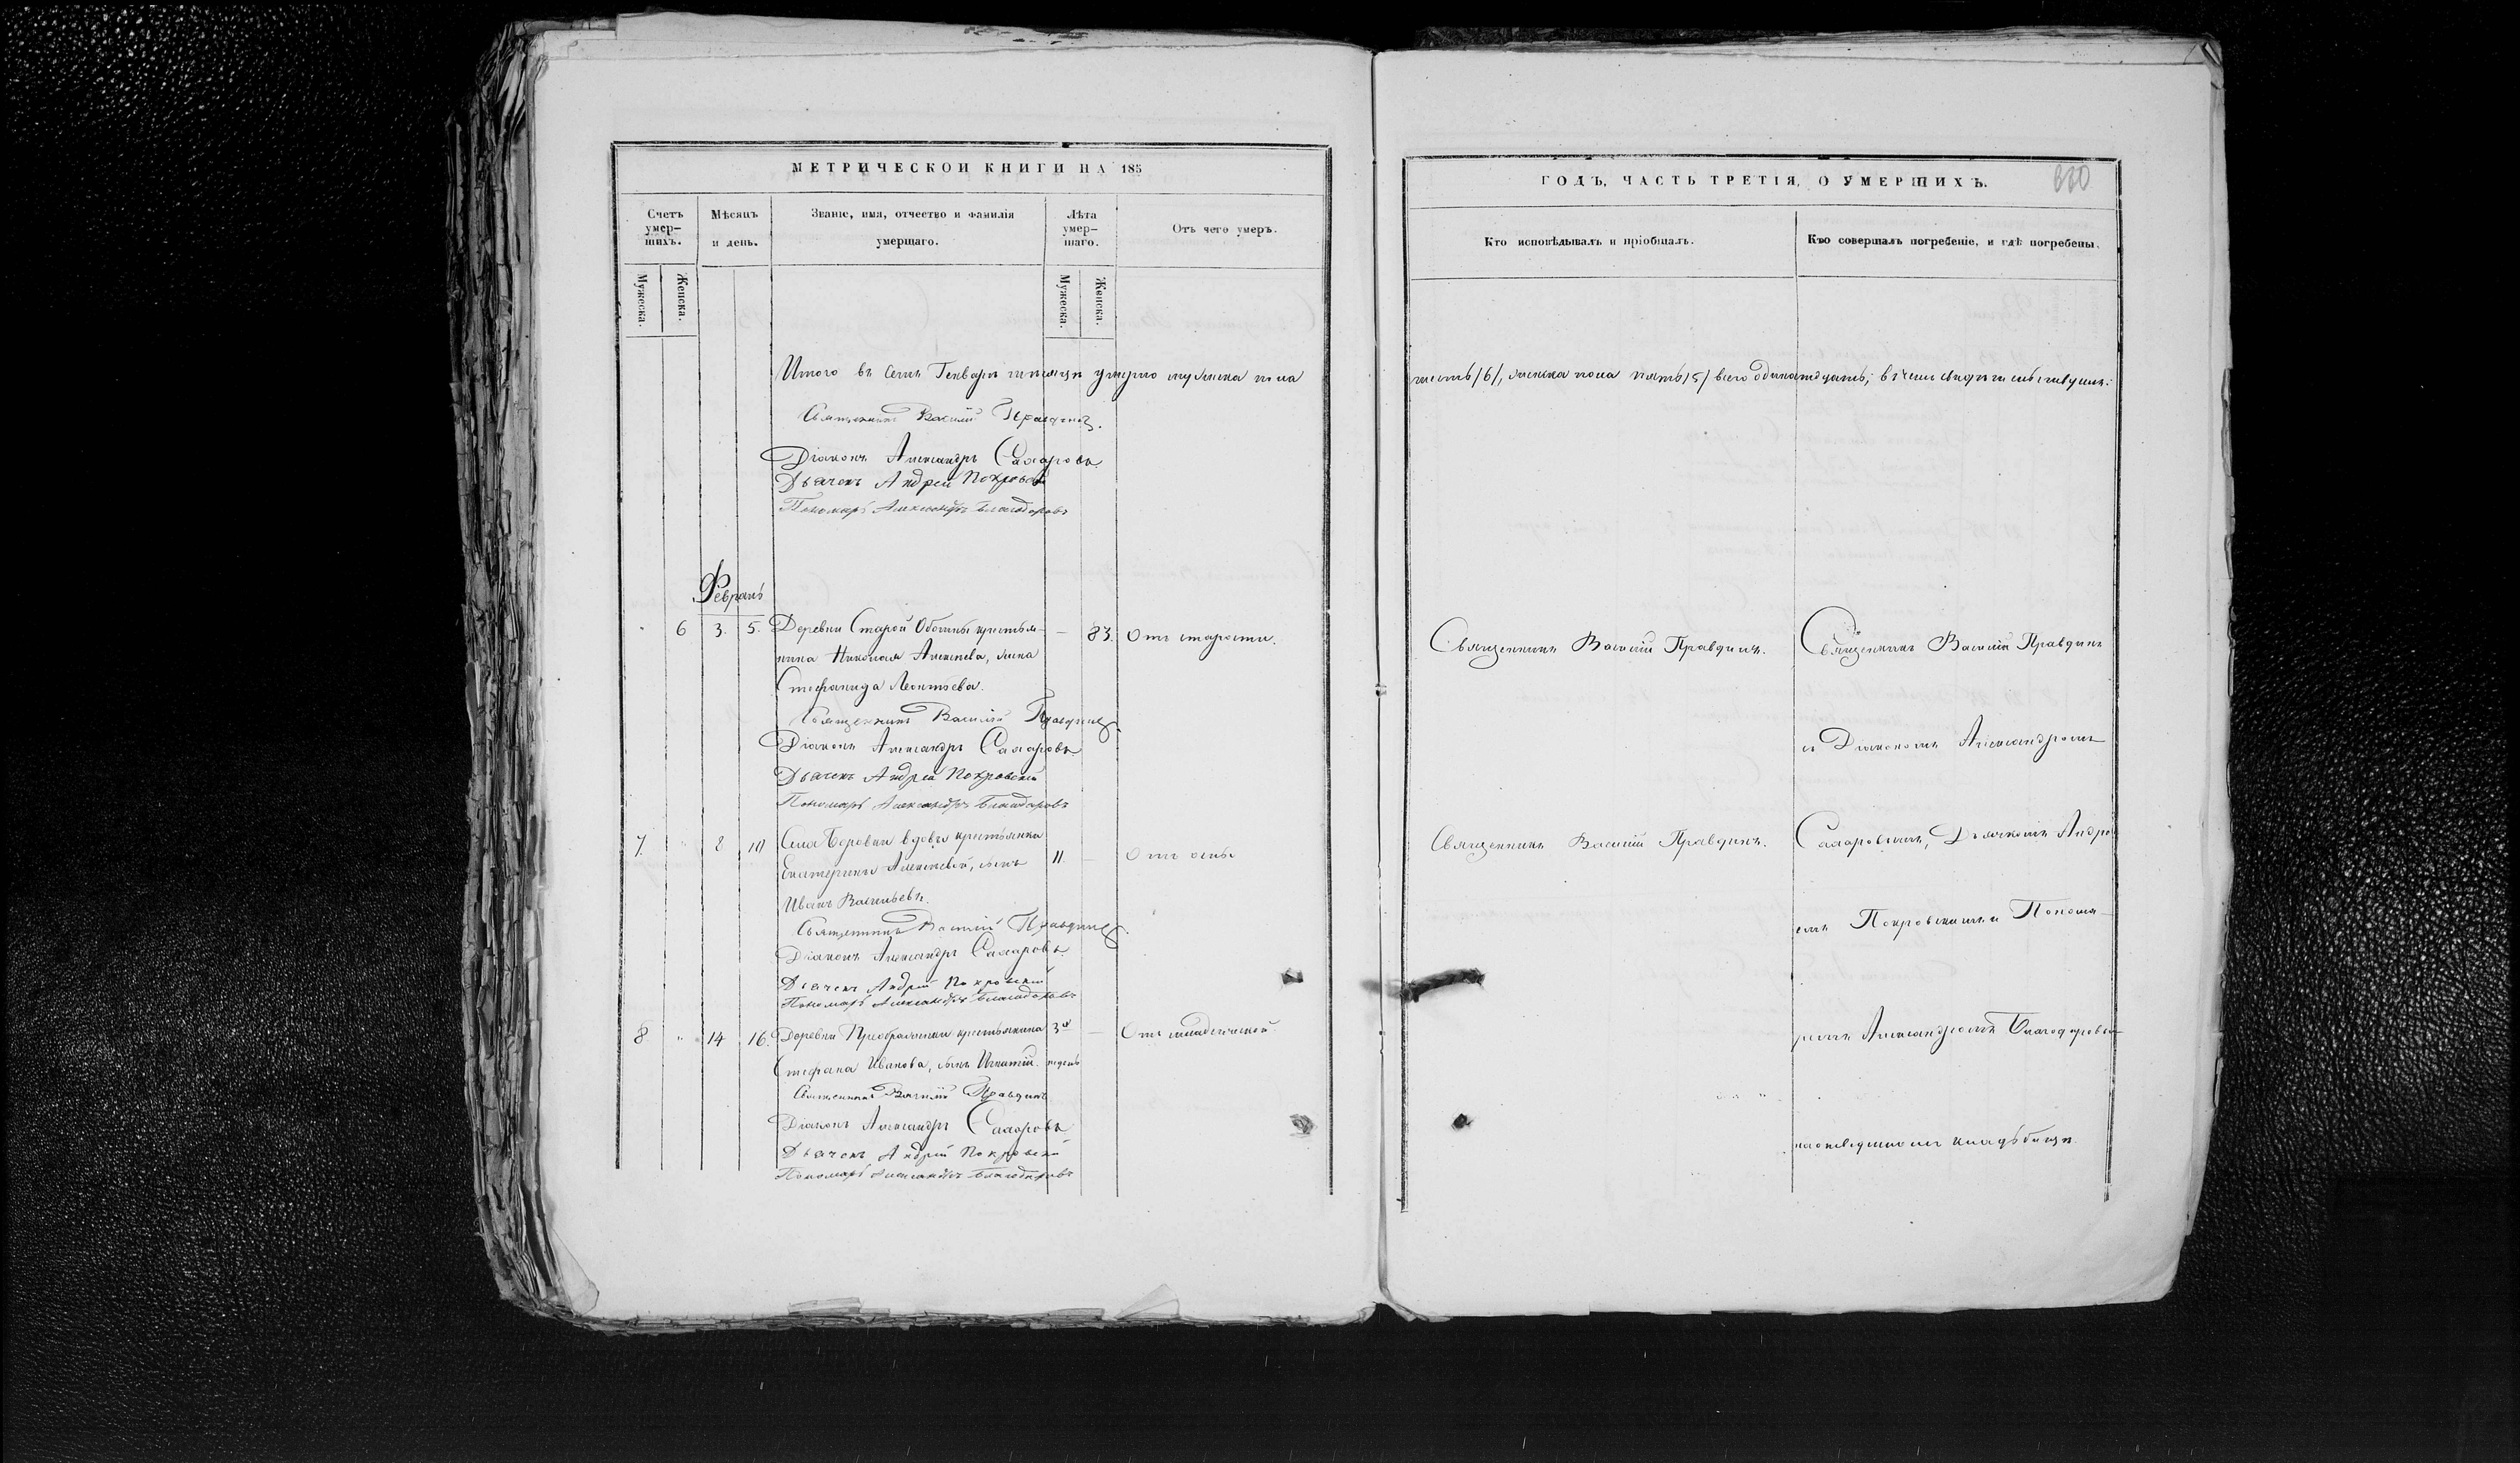 МЕТРИЧЕСКОЙ КНИГИ НА 185
Счетъ умер-шихъ.
Мѣсяцъ и день.
Званіе, имя, отчество и фамилія умершаго.
Лѣта умер-шаго.
Отъ чего умеръ.
Мужеска.
Женска.
Мужеска.
Женска.
Итого въ семъ Генварѣ мѣсяцѣ умерло мужеска пола
Священникъ Василій Правдинъ.
Діаконъ Александръ Сахаровъ
Дьячекъ Андрей Покровскій
Пономарь Александръ Благодаровъ
Февраль
6 3. 5. Деревни Старой крестья- — 83. Отъ старости.
нина Николая Алексѣева, жена
Стефанида Леонтьева.
Священникъ Василій Правдинъ
Діаконъ Александръ Сахаровъ
Дьячекъ Андрей Покровскій
Пономарь Александръ Благодаровъ
7. " 8 10 Села Боровки вдовы крестьянки 11. — Отъ оспы
Екатерины Алексѣевой, сынъ
Иванъ Васильевъ.
Священникъ Василій Правдинъ
Діаконъ Александръ Сахаровъ
Дьячекъ Андрей Покровскій
Пономарь Александръ Благодаровъ
8 " 14 16. Деревни Преображенки крестьянина 3х — Отъ младенческой
Стефана Иванова, сынъ Игнатій. недель
Священникъ Василій Правдинъ
Діаконъ Александръ Сахаровъ
Дьячекъ Андрей Покровскій
Пономарь Александръ Благодаровъ
ГОДЪ, ЧАСТЬ ТРЕТІЯ, О УМЕРШИХЪ.
Кто исповѣдывалъ и пріобщалъ.
Кто совершалъ погребеніе, и гдѣ погребены.
шесть /6/, женска пола пять /5/ всего одинатцать; въ чемъ свидѣтельствуемъ:
Священникъ Василій Правдинъ.
Священникъ Василій Правдинъ
съ Діакономъ Александромъ
Священникъ Василій Правдинъ.
Сахаровымъ, Дьячкомъ Андре
емъ Покровскимъ и Понома-
ремъ Александромъ Благодаровы-
кладбищѣ.